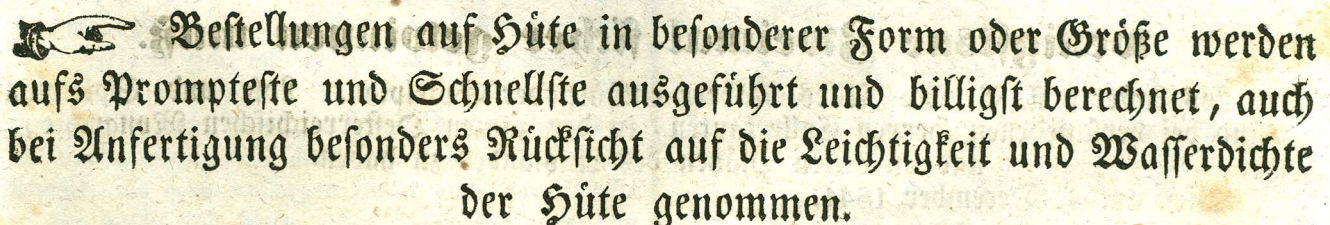 ☞ Beſtellungen auf Hüte in beſonderer Form oder Größe werden
aufs Prompteſte und Schnellſte ausgeführt und billigſt berechnet, auch
bei Anfertigung beſonders Rückſicht auf die Leichtigkeit und Waſſerdichte
der Hüte genommen.